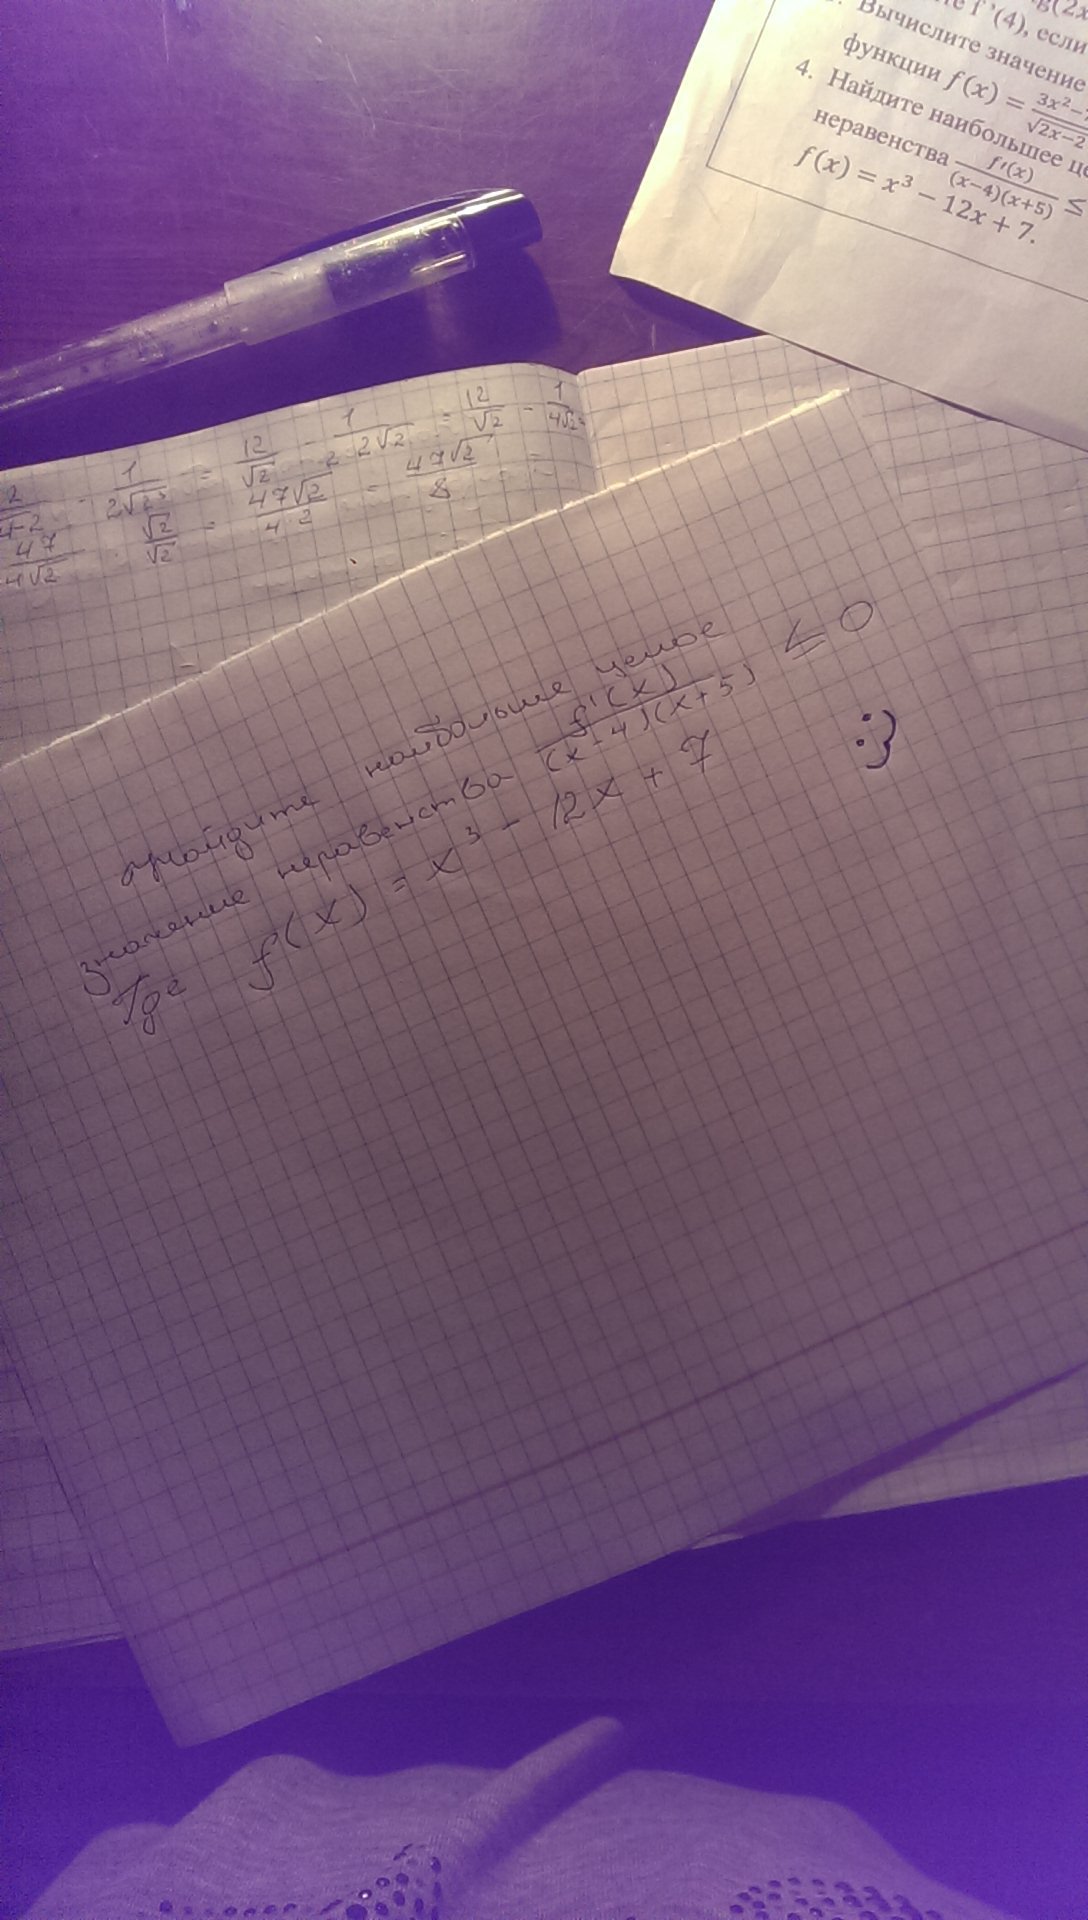 g(2x
f '(4), если
Вычислите значение
функции f(x) = 3x²−7 / √2x−2
4. Найдите наибольшее це
неравенства f′(x) / (x−4)(x+5) ≤
f(x) = x³ − 12x + 7.
1 / 2√2³ = 12 / √2 − 1 / 2·2√2 = 12 / √2 − 1 / 4√2 =
47 / 4√2 · √2 / √2 = 47√2 / 4·2 = 47√2 / 8
Найдите наибольшее целое
значение неравенства f'(x) / (x-4)(x+5) ≤ 0
Где f(x) = x³ - 12x + 7 :)